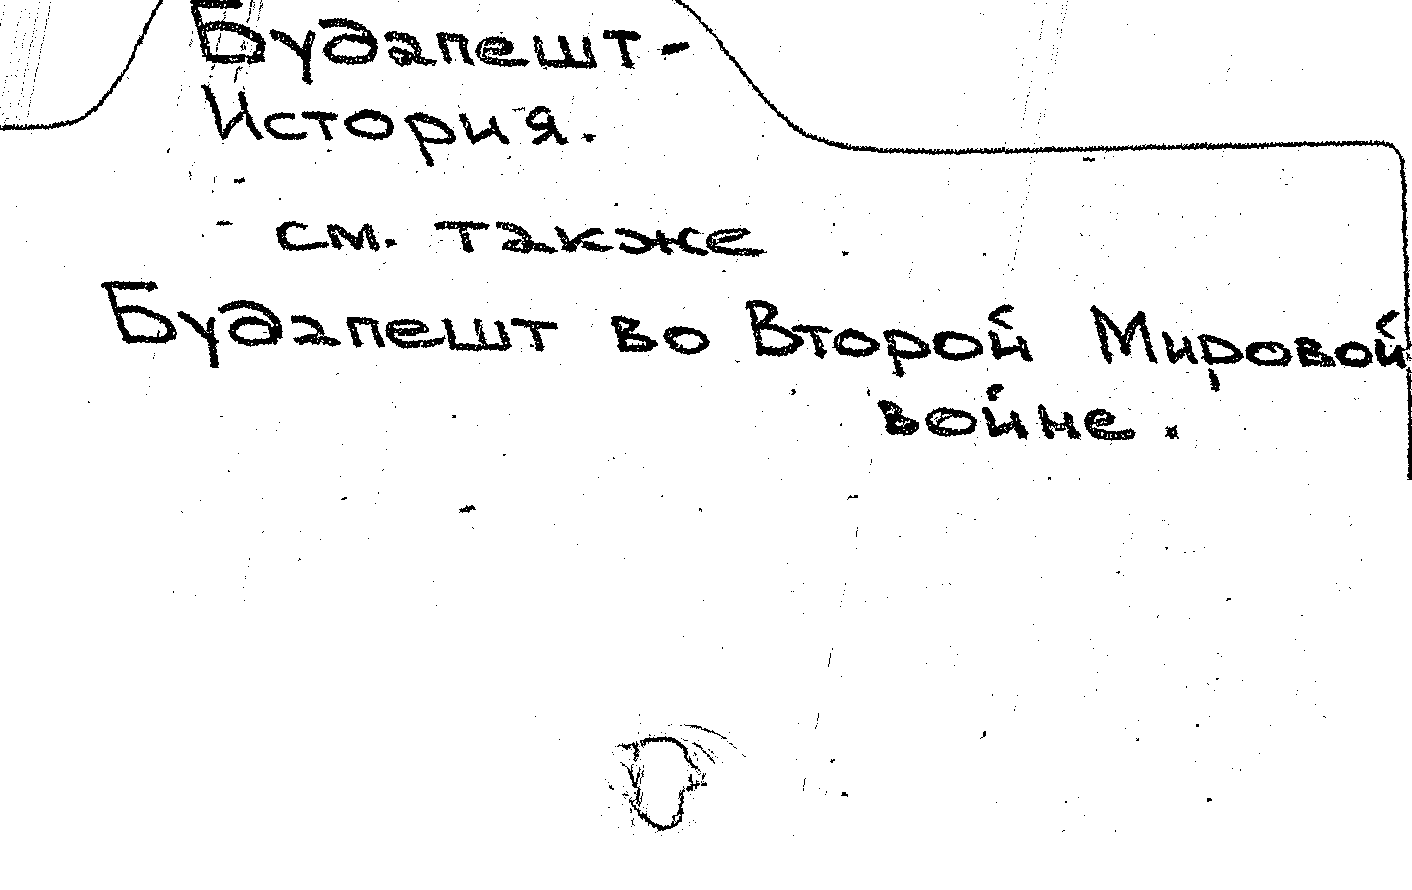 Будапешт-
История.
см. также
Будапешт во Второй Мировой
войне.